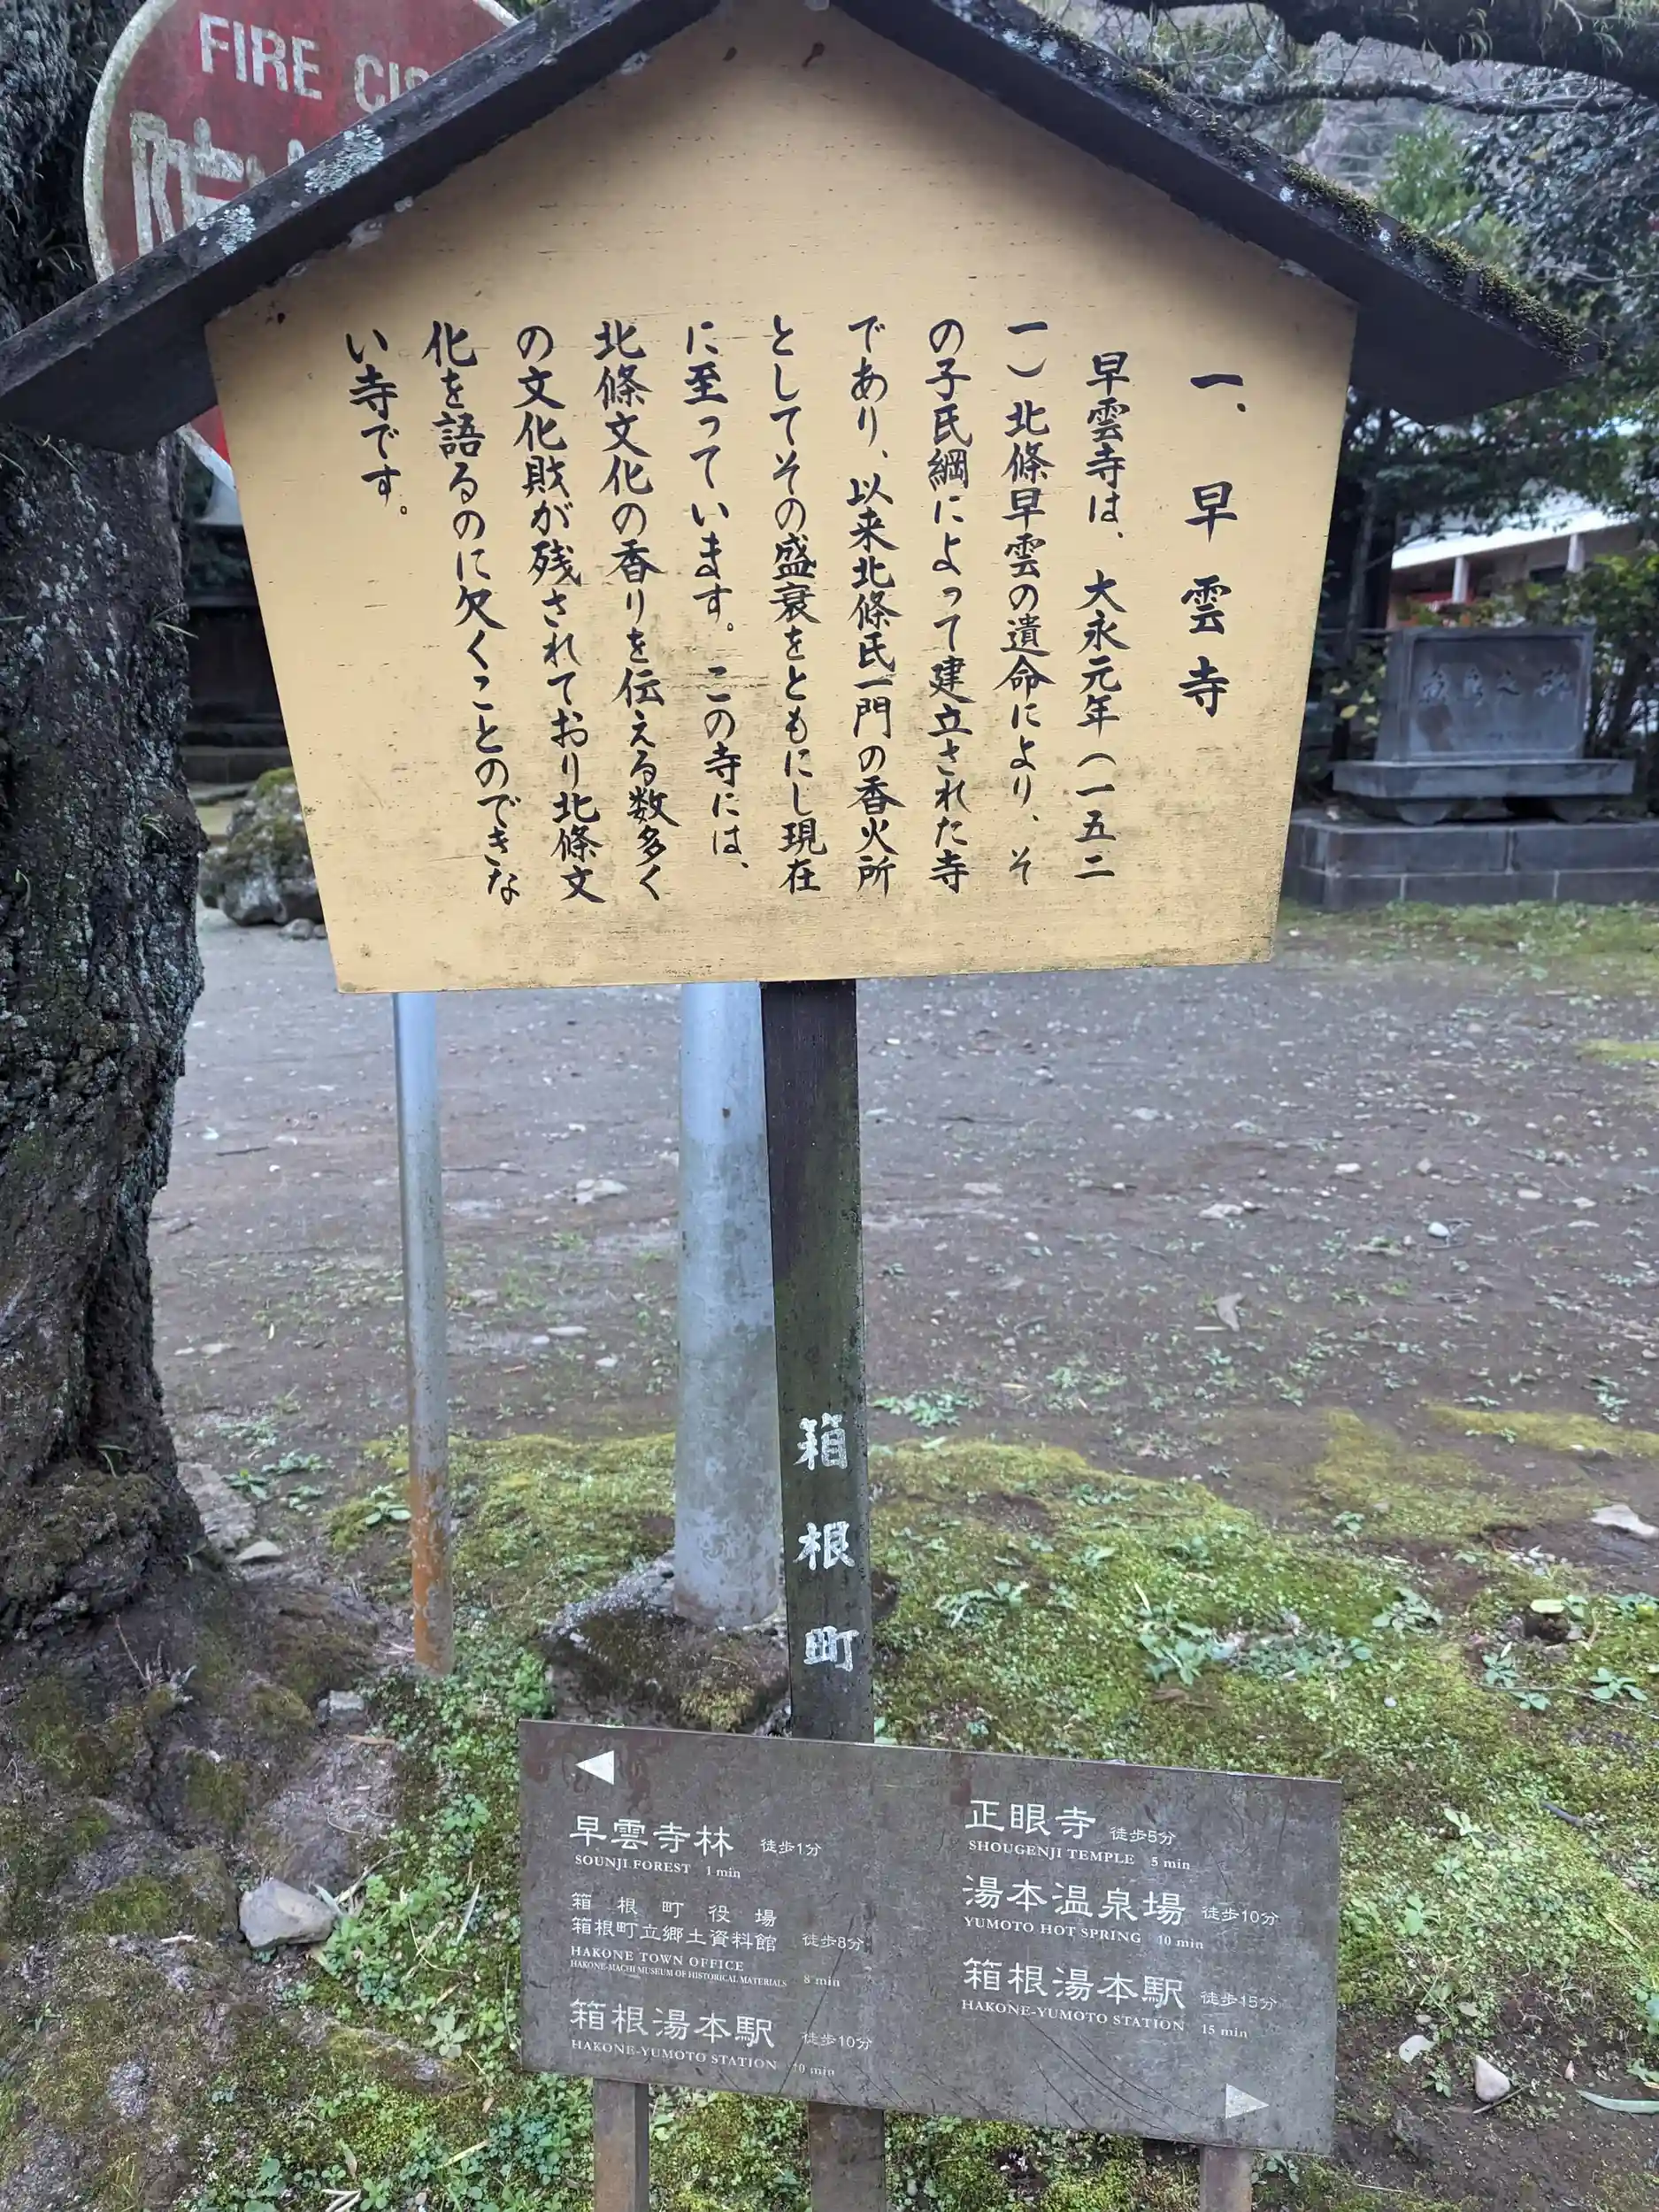 FIRE CIS
一、早雲寺
早雲寺は、大永元年(一五二
一)北條早雲の遺命により、そ
の子氏綱によって建立された寺
であり、以来北條氏一門の香火所
としてその盛衰をともにし現在
に至っています。この寺には、
北條文化の香りを伝える数多く
の文化財が残されており北條文
化を語るのに欠くことのできな
い寺です。
箱根町
早雲寺林 徒歩1分
SOUNJI FOREST 1 min
箱根町役場
箱根町立郷土資料館 徒歩8分
HAKONE TOWN OFFICE
HAKONE-MACHI MUSEUM OF HISTORICAL MATERIALS 8 min
箱根湯本駅 徒歩10分
HAKONE-YUMOTO STATION 10 min
正眼寺 徒歩5分
SHOUGENJI TEMPLE 5 min
湯本温泉場 徒歩10分
YUMOTO HOT SPRING 10 min
箱根湯本駅 徒歩15分
HAKONE-YUMOTO STATION 15 min